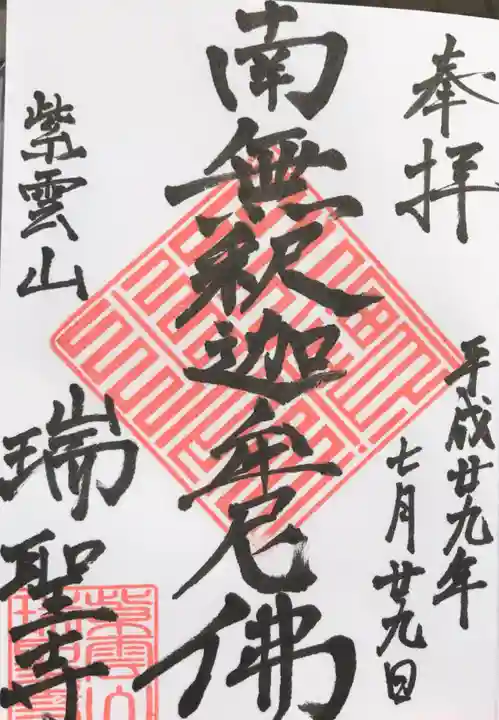 奉拝
平成廿九年
七月廿九日
南無釈迦牟尼佛
紫雲山
瑞聖寺